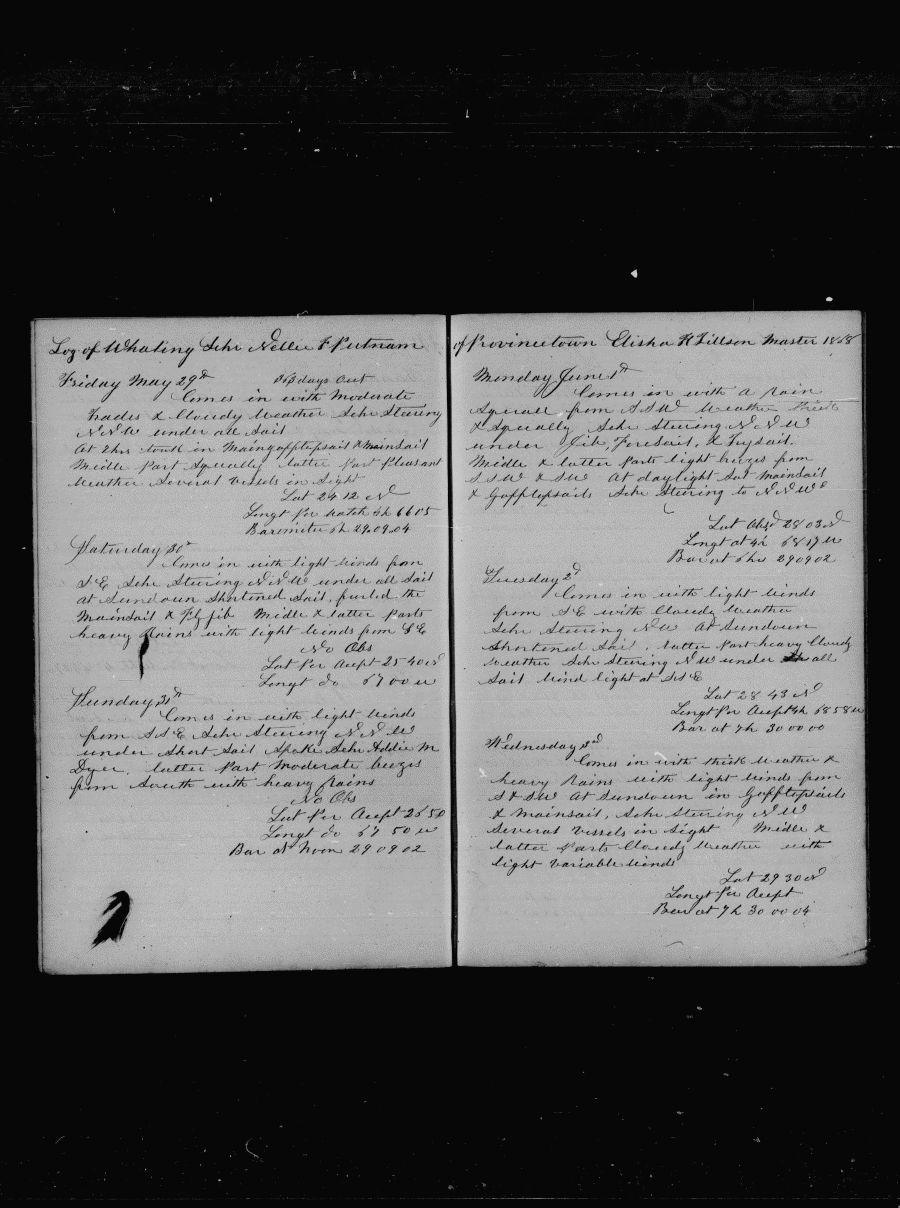 Log of Whaling Schr Nellie F Putnam
Friday May 29th days Out
Comes in with Moderate
trades & Cloudy Weather Schr Steering
NNW under all Sail
At 7hrs took in Maingafftopsail & Mainsail
Midle Part Squally latter Part Pleasant
Weather Several Vessels in Sight
Lat 24 12 N
Longt Per Watch 4h 66 05
Barometer 6h 29.09.04
Saturday 30th
Comes in with light winds from
SE Schr Steering NNW under all Sail
at Sundown Shortened Sail, furled the
Mainsail & Fl jib Midle & latter Parts
heavy Rains with light Winds from SE
No Obs
Lat Per Acept 25 40 N
Longt do 67 00 W
Sunday 31st
Comes in with light Winds
from SSE Schr Steering NNW
under Short Sail Spoke Schr Addie M
Dyer. latter Part Moderate breezes
from South with heavy Rains
No Obs
Lat Per Acept 26 50
Longt do 67 50 W
Bar at Noon 29 09 02
of Provincetown Elisha H Tillson Master 1868
Monday June 1st
Comes in with a Rain
Squall from SSW Weather thick
& Squally Schr Steering NNW
under Jib, Foresail, & Trysail.
Midle & latter Parts light brezes from
SSW & SW At daylight Sat Mainsail
& Gafftopsails Schr Steering to NNW
Lat Obsd 28 03 N
Longt at 4h 68 19 W
Bar at 6 hrs 29 09 02
Tuesday 2d
Comes in with light Winds
from SE with Cloudy Weather
Schr Steering NW At Sundown
Shortened Sail, latter Part heavy Cloudy
Weather Schr Steering NW under all
Sail Wind light at SSE
Lat 28 43 N
Longt Per Acept 4h 68 58 W
Bar at 7h 30 00 00
Wednesday 3d
Comes in with thick Weather &
heavy Rains with light Winds from
S & SW At Sundown in Gafftopsails
& Mainsail, Schr Steering NW
Several Vessels in Sight Midle &
latter Parts Cloudy Weather with
light Variable Winds
Lat 29 30 N
Longt Per Acept
Bar at 7h 30 00 04